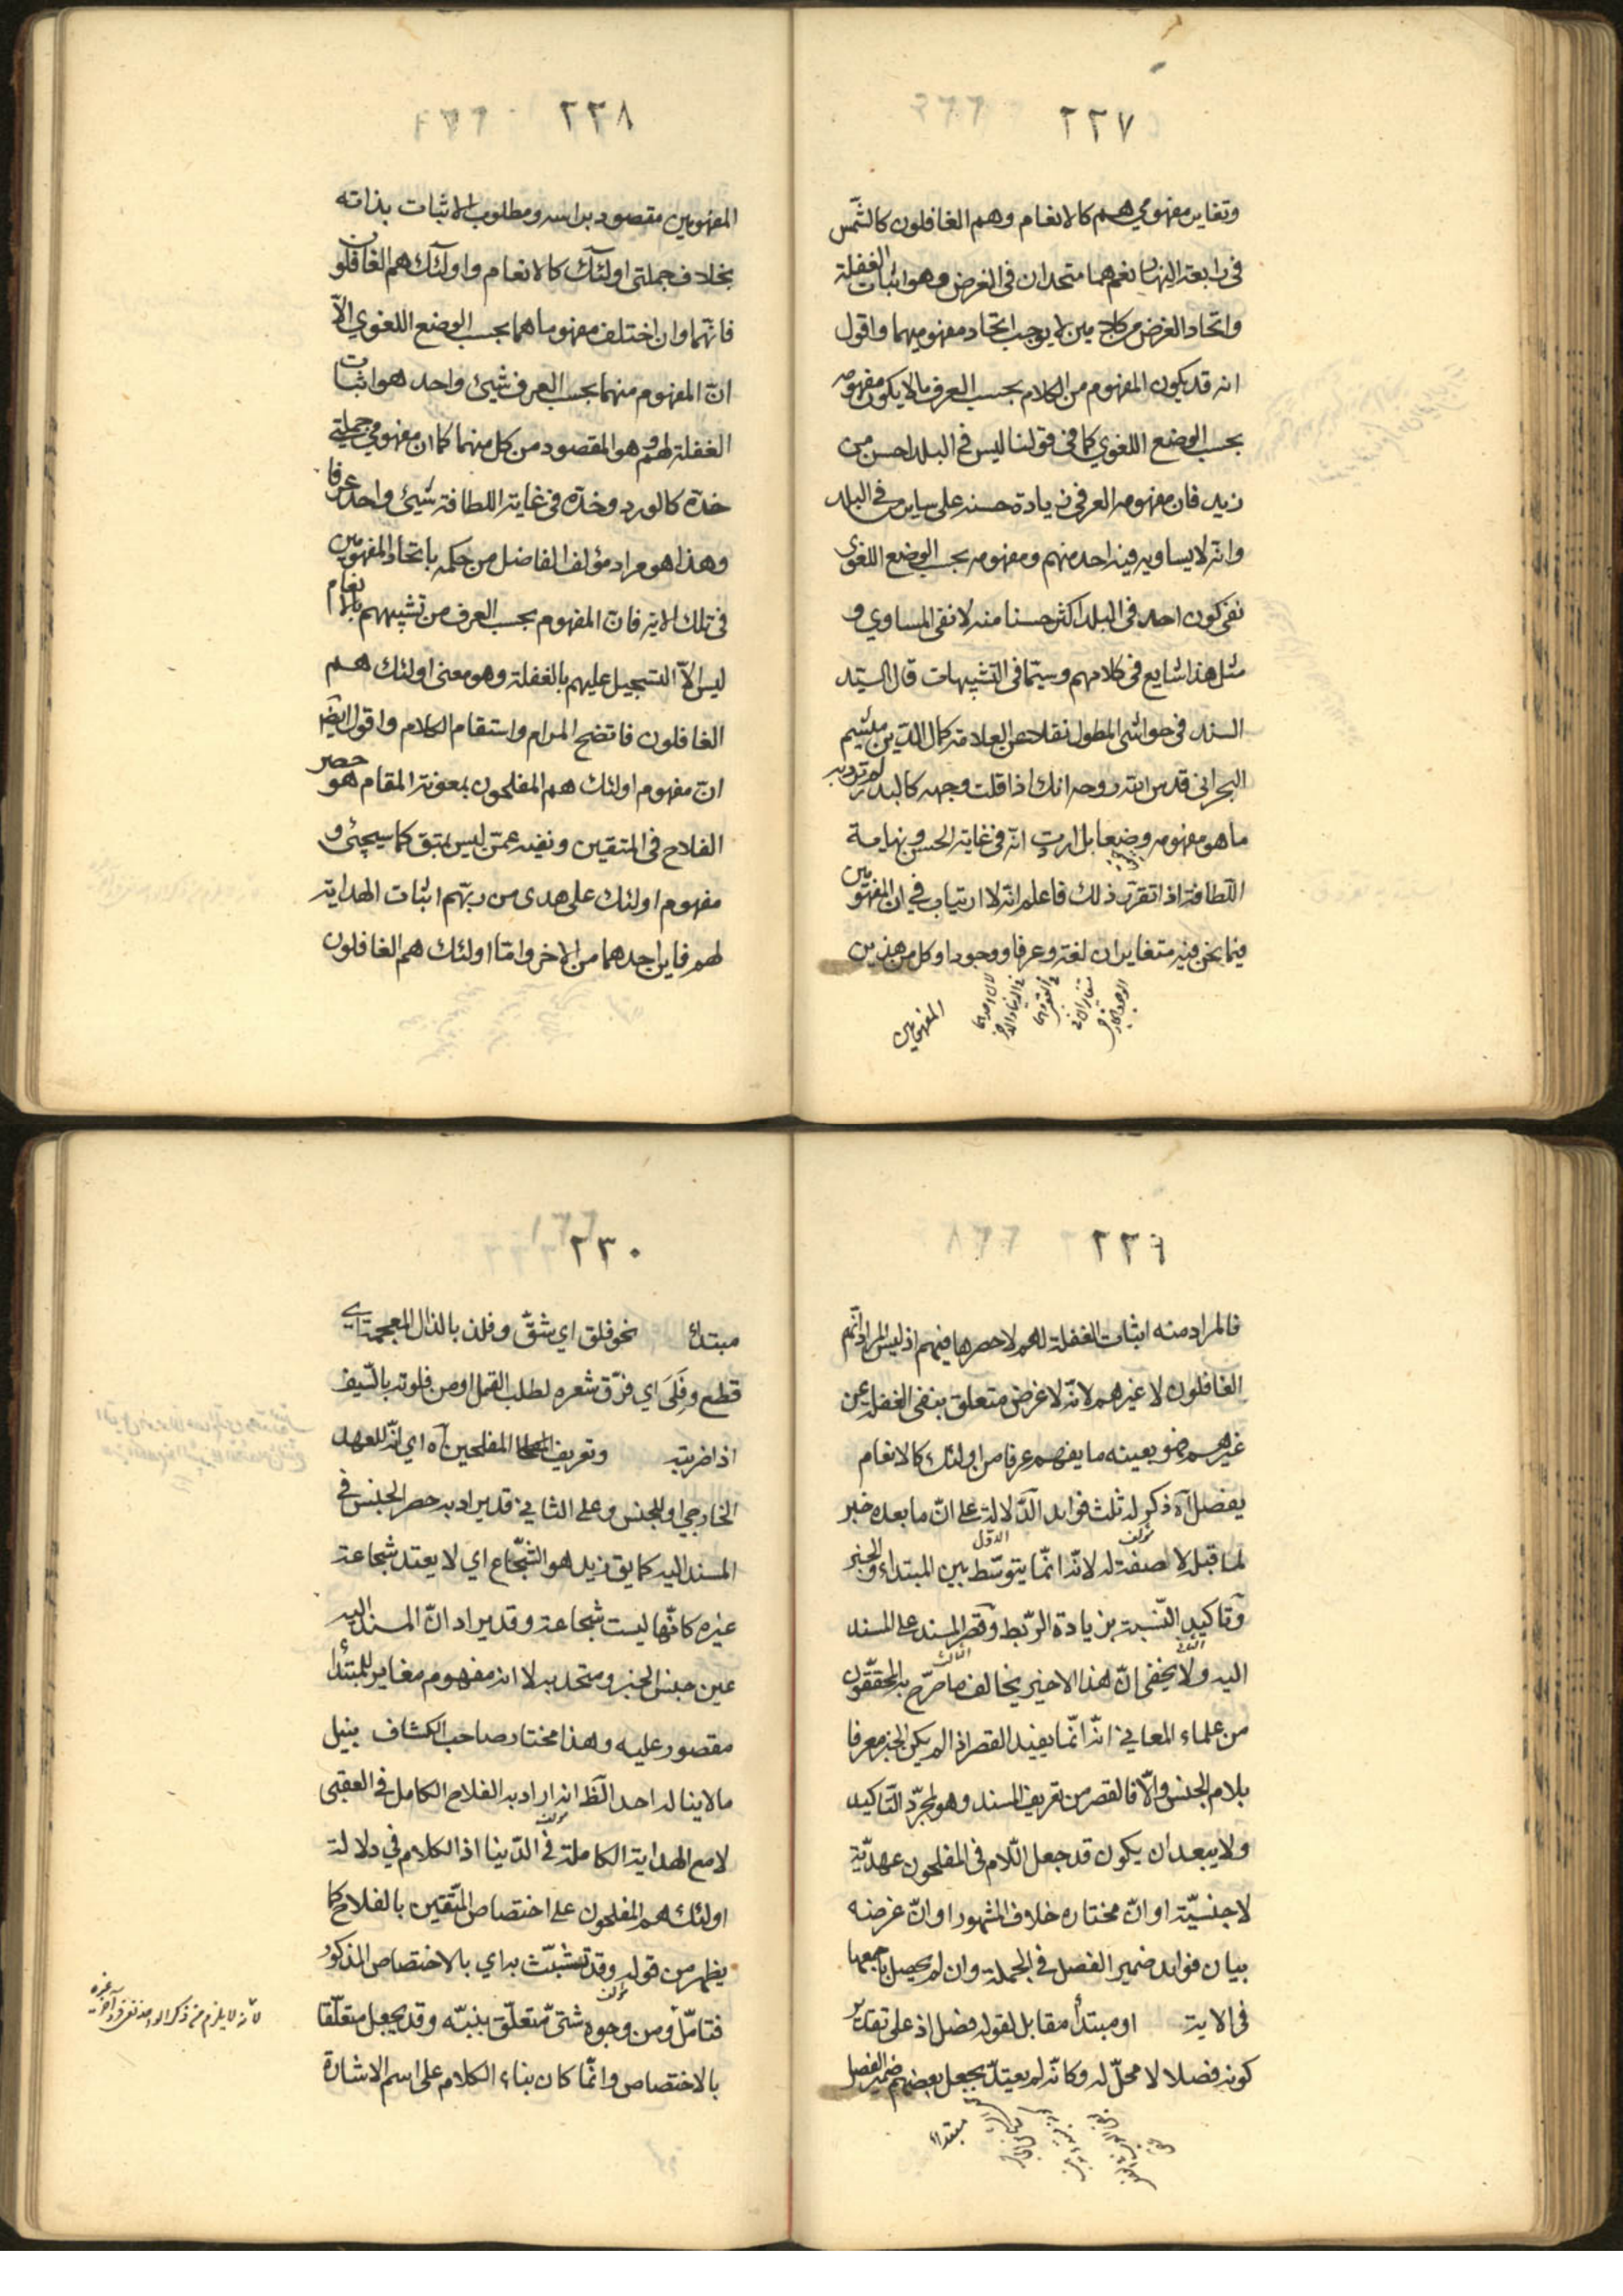 ٢٢٧
وتغاير مفهومي هم كالانعام وهم الغافلون كالشمس
في رابعة النهار نعم هما متحدان في الغرض وهو اثبات الغفلة
واتحاد الغرض من كلامين لا يوجب اتحاد مفهوميهما واقول
انه قد يكون المفهوم من الكلام بحسب العرف ما لا يكون مفهومه
بحسب الوضع اللغوي كما في قولنا ليس في البلد احسن من
زيد فان مفهومه العرفي زيادة حسنه على ساير من في البلد
وانه لا يساويه فيه احد منهم ومفهومه بحسب الوضع اللغوي
نفي كون احد في البلد اكثر حسنا منه لا نفي المساوي و
مثل هذا شايع في كلامهم وسيّما في التشبيهات قال السيّد
السند في حواشي المطول نقلا عن العلامة كمال الدين ميثم
البحراني قدس الله روحه انك اذا قلت وجهه كالبدر لم ترد به
ما هو مفهومه وضعا بل اردت انه في غاية الحسن ونهاية
اللطافة اذا تقرر ذلك فاعلم انه لا ارتياب في ان المفهومين
فيما نحن فيه متغايران لغة وعرفا ووجودا وكل من هذين
المفهومين
٢٢٨
المفهومين مقصود براسه ومطلوب الاثبات بذاته
بخلاف جملتي اولئك كالانعام واولئك هم الغافلون
فانهما وان اختلف مفهوماهما بحسب الوضع اللغوي الّا
انّ المفهوم منهما بحسب العرف شيئ واحد هو اثبات
الغفلة لهم وهو المقصود من كل منهما كما ان مفهومي جملتي
خدّه كالورد وخدّه في غاية اللطافة شيئ واحد عرفا
وهذا هو مراد مؤلف الفاضل من حكمه باتحاد المفهومين
في تلك الاية فانّ المفهوم بحسب العرف من تشبيههم بالانعام
ليس الّا التسجيل عليهم بالغفلة وهو معنى اولئك هم
الغافلون فاتضح المرام واستقام الكلام واقول ايضا
انّ مفهوم اولئك هم المفلحون بمعونة المقام هو حصر
الفلاح في المتقين ونفيه عمّن ليس بمتق كما سيجئ و
مفهوم اولئك على هدى من ربّهم اثبات الهداية
لهم فاين احدهما من الاخر وامّا اولئك هم الغافلون
٢٢٩
فالمراد منه اثبات الغفلة لهم لا حصرها فيهم اذ ليس المراد انّهم
الغافلون لا غيرهم لانّه لا غرض متعلق بنفي الغفلة عن
غيرهم فهو بعينه ما يفهم عرفا من اولئك كالانعام
يفصل آه ذكر له ثلث فوايد الدّلالة على انّ ما بعده خبر
لما قبله لا صفة له لانّه انّما يتوسّط بين المبتداء والخبر
وتاكيد النّسبة بزيادة الرّبط وقصر المسند على المسند
اليه ولا يخفى انّ هذا الاخير يخالف ما صرّح به المحققّون
من علماء المعاني انّه انّما يفيد القصر اذا لم يكن الخبر معرفا
بلام الجنس والّا فالقصر من تعريف المسند وهو لمجرّد التاكيد
ولا يبعد ان يكون قد جعل اللّام في المفلحون عهديّة
لا جنسيّة او انّ مختاره خلاف المشهور او انّ غرضه
بيان فوايد ضمير الفصل في الجملة وان لم يحصل باجمعها
في الاية او مبتدأ مقابل لقوله فصل اذ على تقدير
كونه فصلا لا محلّ له وكانّه لم يعتدّ بجعل بعضهم ضمير الفصل
مبتداء
٢٣٠
مبتداء نحو فلق اي شقّ وفلذ بالذال المعجمة اي
قطع وفَلَى اي فرّق شعره لطلب القمل او من فلوته بالسّيف
اذا ضربته وتعريف المفلحين آه اي انّه للعهد
الخارجي او للجنس وعلى الثاني قد يراد به حصر الجنس في
المسند اليه كما يق زيد هو الشّجّاع اي لا يعتد شجاعة
غيره كانّها ليست شجاعة وقد يراد انّ المسند اليه
عين جنس الخبر ومتحد به لا انه مفهوم مغاير للمبتدأ
مقصور عليه وهذا مختار صاحب الكشاف بنيل
ما لا يناله احد الظّ انه اراد به الفلاح الكامل في العقبى
لا مع الهداية الكاملة في الدّينا اذ الكلام في دلالة
اولئك هم المفلحون على اختصاص المتّقين بالفلاح كما
يظهر من قوله وقد تشبّث به اي بالاختصاص المذكور
فتامّل ومن وجوه شتّى متعلّق بنبّه وقد يجعل متعلّقا
بالاختصاص وانّما كان بناء الكلام على اسم الاشارة